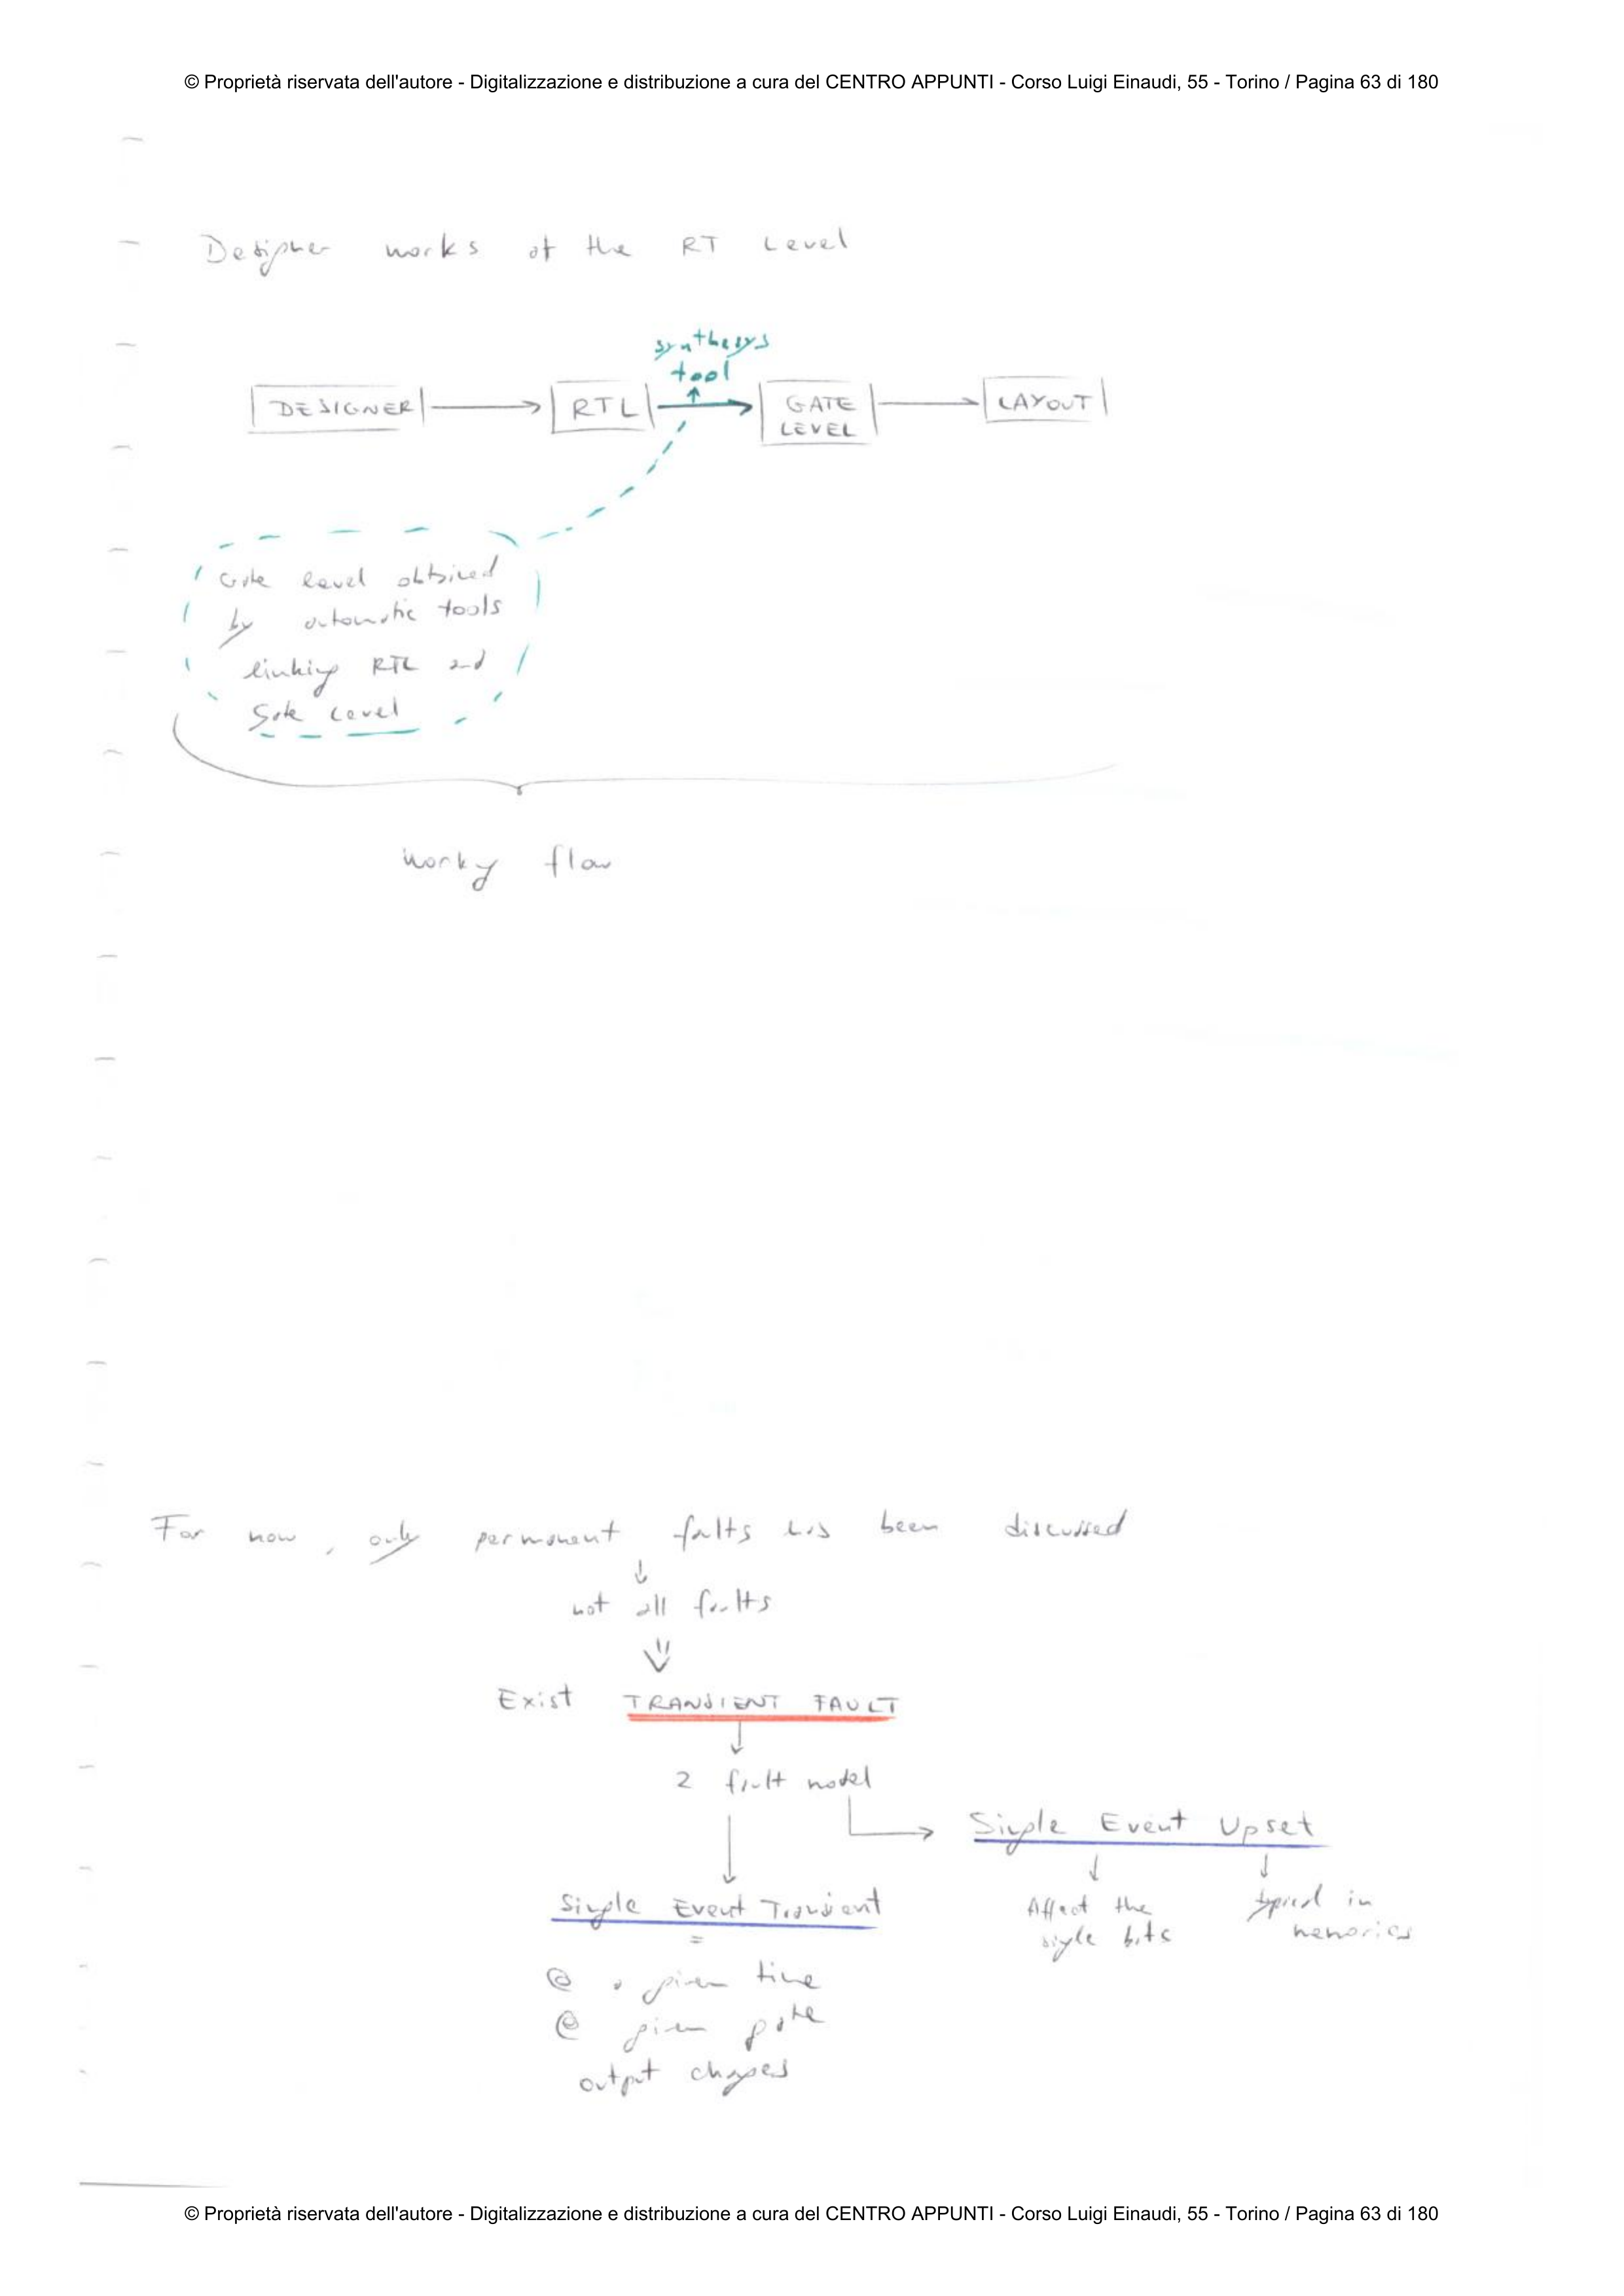 © Proprietà riservata dell'autore - Digitalizzazione e distribuzione a cura del CENTRO APPUNTI - Corso Luigi Einaudi, 55 - Torino / Pagina 63 di 180
Designer works at the RT Level
synthesys
tool
DESIGNER
RTL
GATE
LEVEL
LAYOUT
Gate level obtained
by automatic tools
linking RTL and
Gate Level
flow
For now, only permanent faults has been discussed
not all faults
Exist TRANSIENT FAULT
2 fault model
Single Event Upset
Single Event Transient
Affect the
single bits
typical in
memories
=
@ a given time
@ given gate
output changes
© Proprietà riservata dell'autore - Digitalizzazione e distribuzione a cura del CENTRO APPUNTI - Corso Luigi Einaudi, 55 - Torino / Pagina 63 di 180